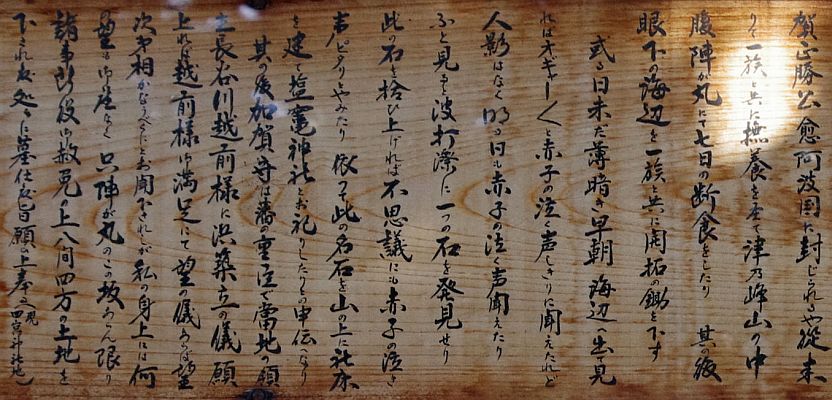 賀正勝公愈阿波国に封じらるゝや従来
りて一族と共に撫養を立て津乃峰山の中
腹陣が丸にて七日の断食をしたり 其の後
眼下の海辺を一族と共に開拓の鋤を下す
或る日未だ薄暗き早朝海辺へ出見
ればオギャー〱と赤子の泣く声しきりに聞えたれど
人影はなく明る日も赤子の泣く声聞えたり
ふと見れば波打際に一つの石を発見せり
此の石を拾ひ上げれば不思議にも赤子の泣き
声ピタリとやみたり 依つて此の名石を山の上に社床
を建て塩竃神社とお祀りしたりとの申伝へなり
其の後加賀守は藩の重注で當地の領
主長谷川越前様に浜築立の儀願
上れば越前様御満足にて望の儀あらば望
次第相かなうべくとお聞下されしが私の身上には何
望も御座なく只陣が丸のこの坂あらん限り
諸事所役御赦免の上八間四方の土地を
下され度処々に墓仕度旨願の上奉る(現四宮神社地)